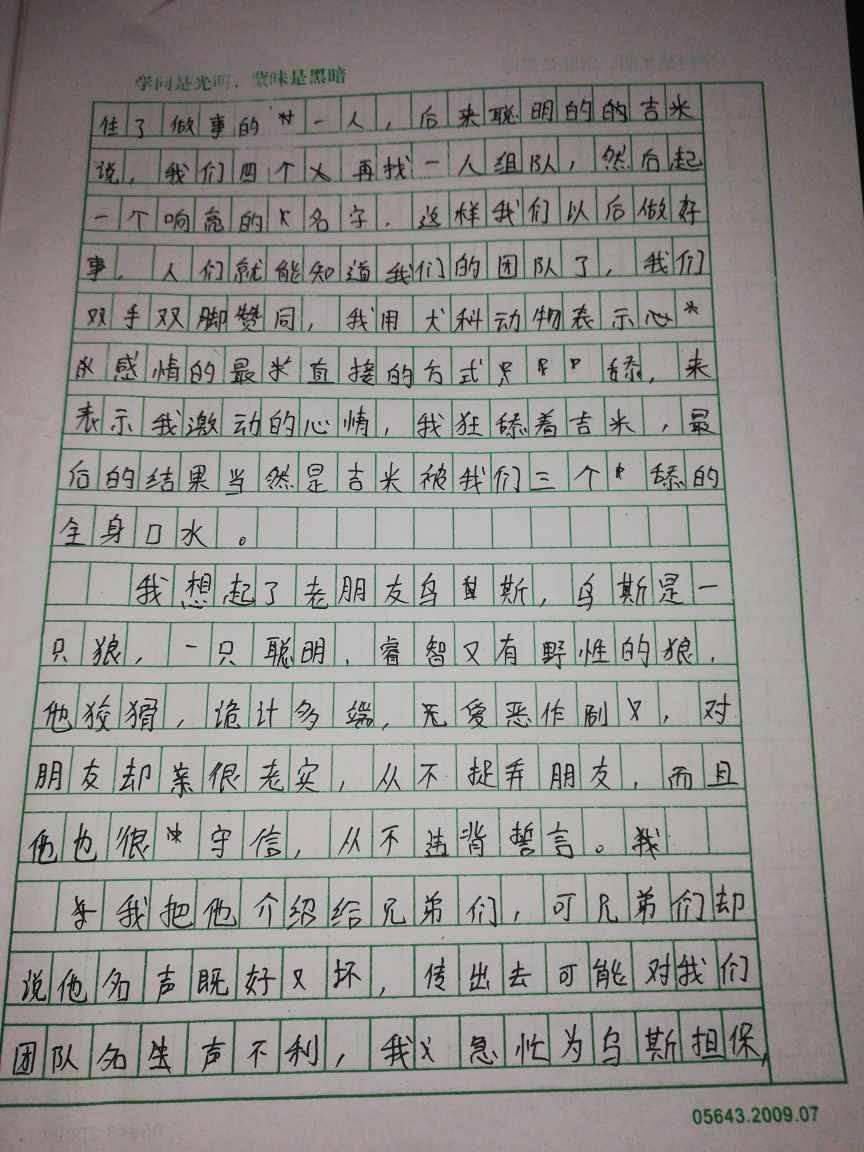 学问是光明，蒙昧是黑暗
住了做事的一人，后来聪明的的吉米
说，我们四个再找一人组队，然后起
一个响亮的名字．这样我们以后做好
事．人们就能知道我们的团队了，我们
双手双脚赞同，我用犬科动物表示心
感情的最直接的方式舔，来
表示我激动的心情，我狂舔着吉米，最
后的结果当然是吉米被我们三个舔的
全身口水。
我想起了老朋友乌斯，乌斯是一
只狼，一只聪明．睿智又有野性的狼．
他狡猾，诡计多端，无爱恶作剧，对
朋友却亲很老实，从不捉弄朋友，而且
他也很守信，从不违背誓言。我
我把他介绍给兄弟们，可兄弟们却
说他名声既好又坏，传出去可能对我们
团队名声不利，我急忙为乌斯担保，
05643.2009.07